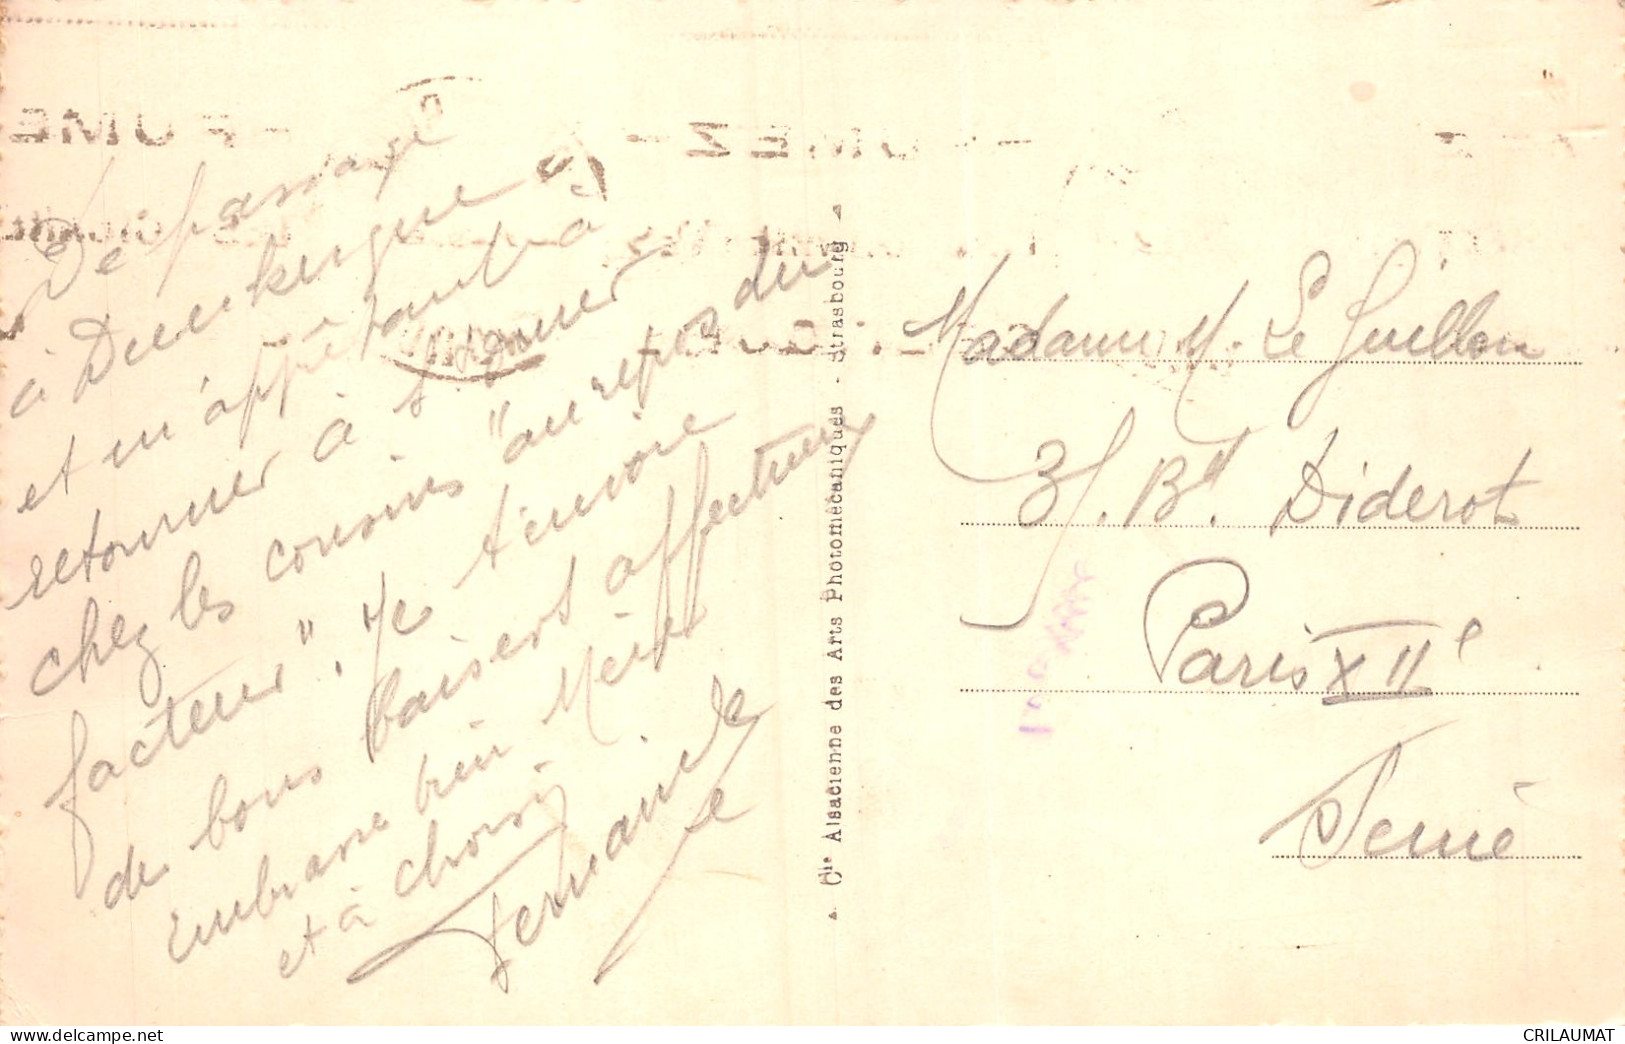 De passage
à Dunkerque
et m'apprêtant à
retourner à
chez les cousins "au repos du
facteur". Je t'envoie
de bons baisers affectueux
embrasse bien
et à
Fernande
Cie Alsacienne des Arts Photomécaniques - Strasbourg
Madame M. Le Guillou
Bd. Diderot
Paris XIIe
Seine
CRILAUMAT